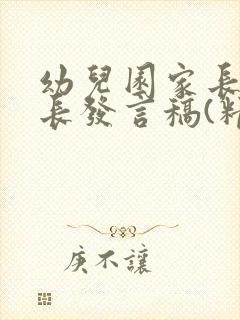 幼兒園家長
長發言稿(精
庚不讓